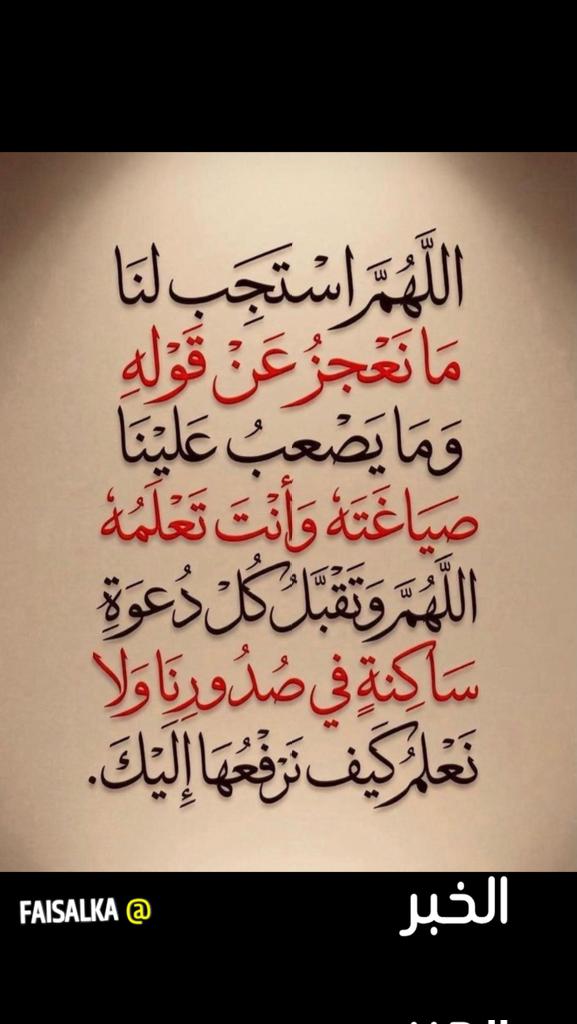 اللَّهُمَّ اسْتَجِب لنَا
مَا نَعْجزُ عَنْ قَوْلهِ
وَمَا يَصْعبُ عَليْنَا
صيَاغَتَهُ وَأنْتَ تَعْلَمُهُ
اللَّهُمَّ وَتَقْبَّلُ كُلْ دُعوَةِ
سَاكِنةٍ في صُدُورِنَا وَلا
نَعْلمُ كَيف نَرْفعُهَا إِلَيْكَ.
الخبر
FAISALKA @